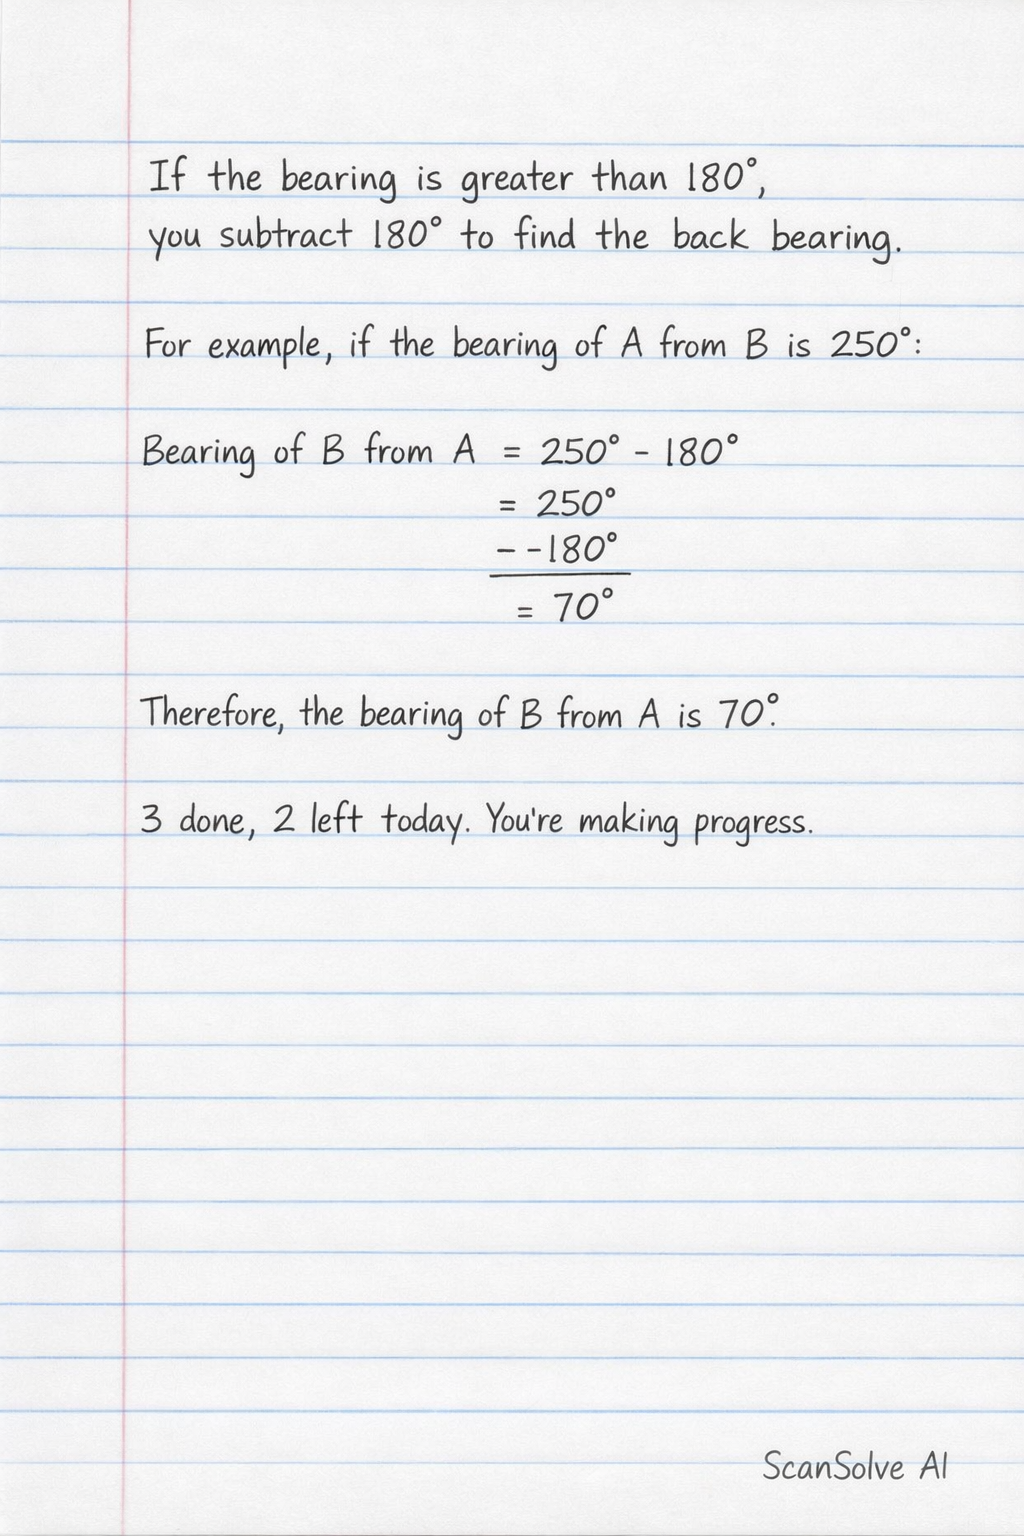 If the bearing is greater than 180°,
you subtract 180° to find the back bearing.
For example, if the bearing of A from B is 250°:
Bearing of B from A = 250° - 180°
= 250°
- -180°
= 70°
Therefore, the bearing of B from A is 70°.
3 done, 2 left today. You're making progress.
ScanSolve AI